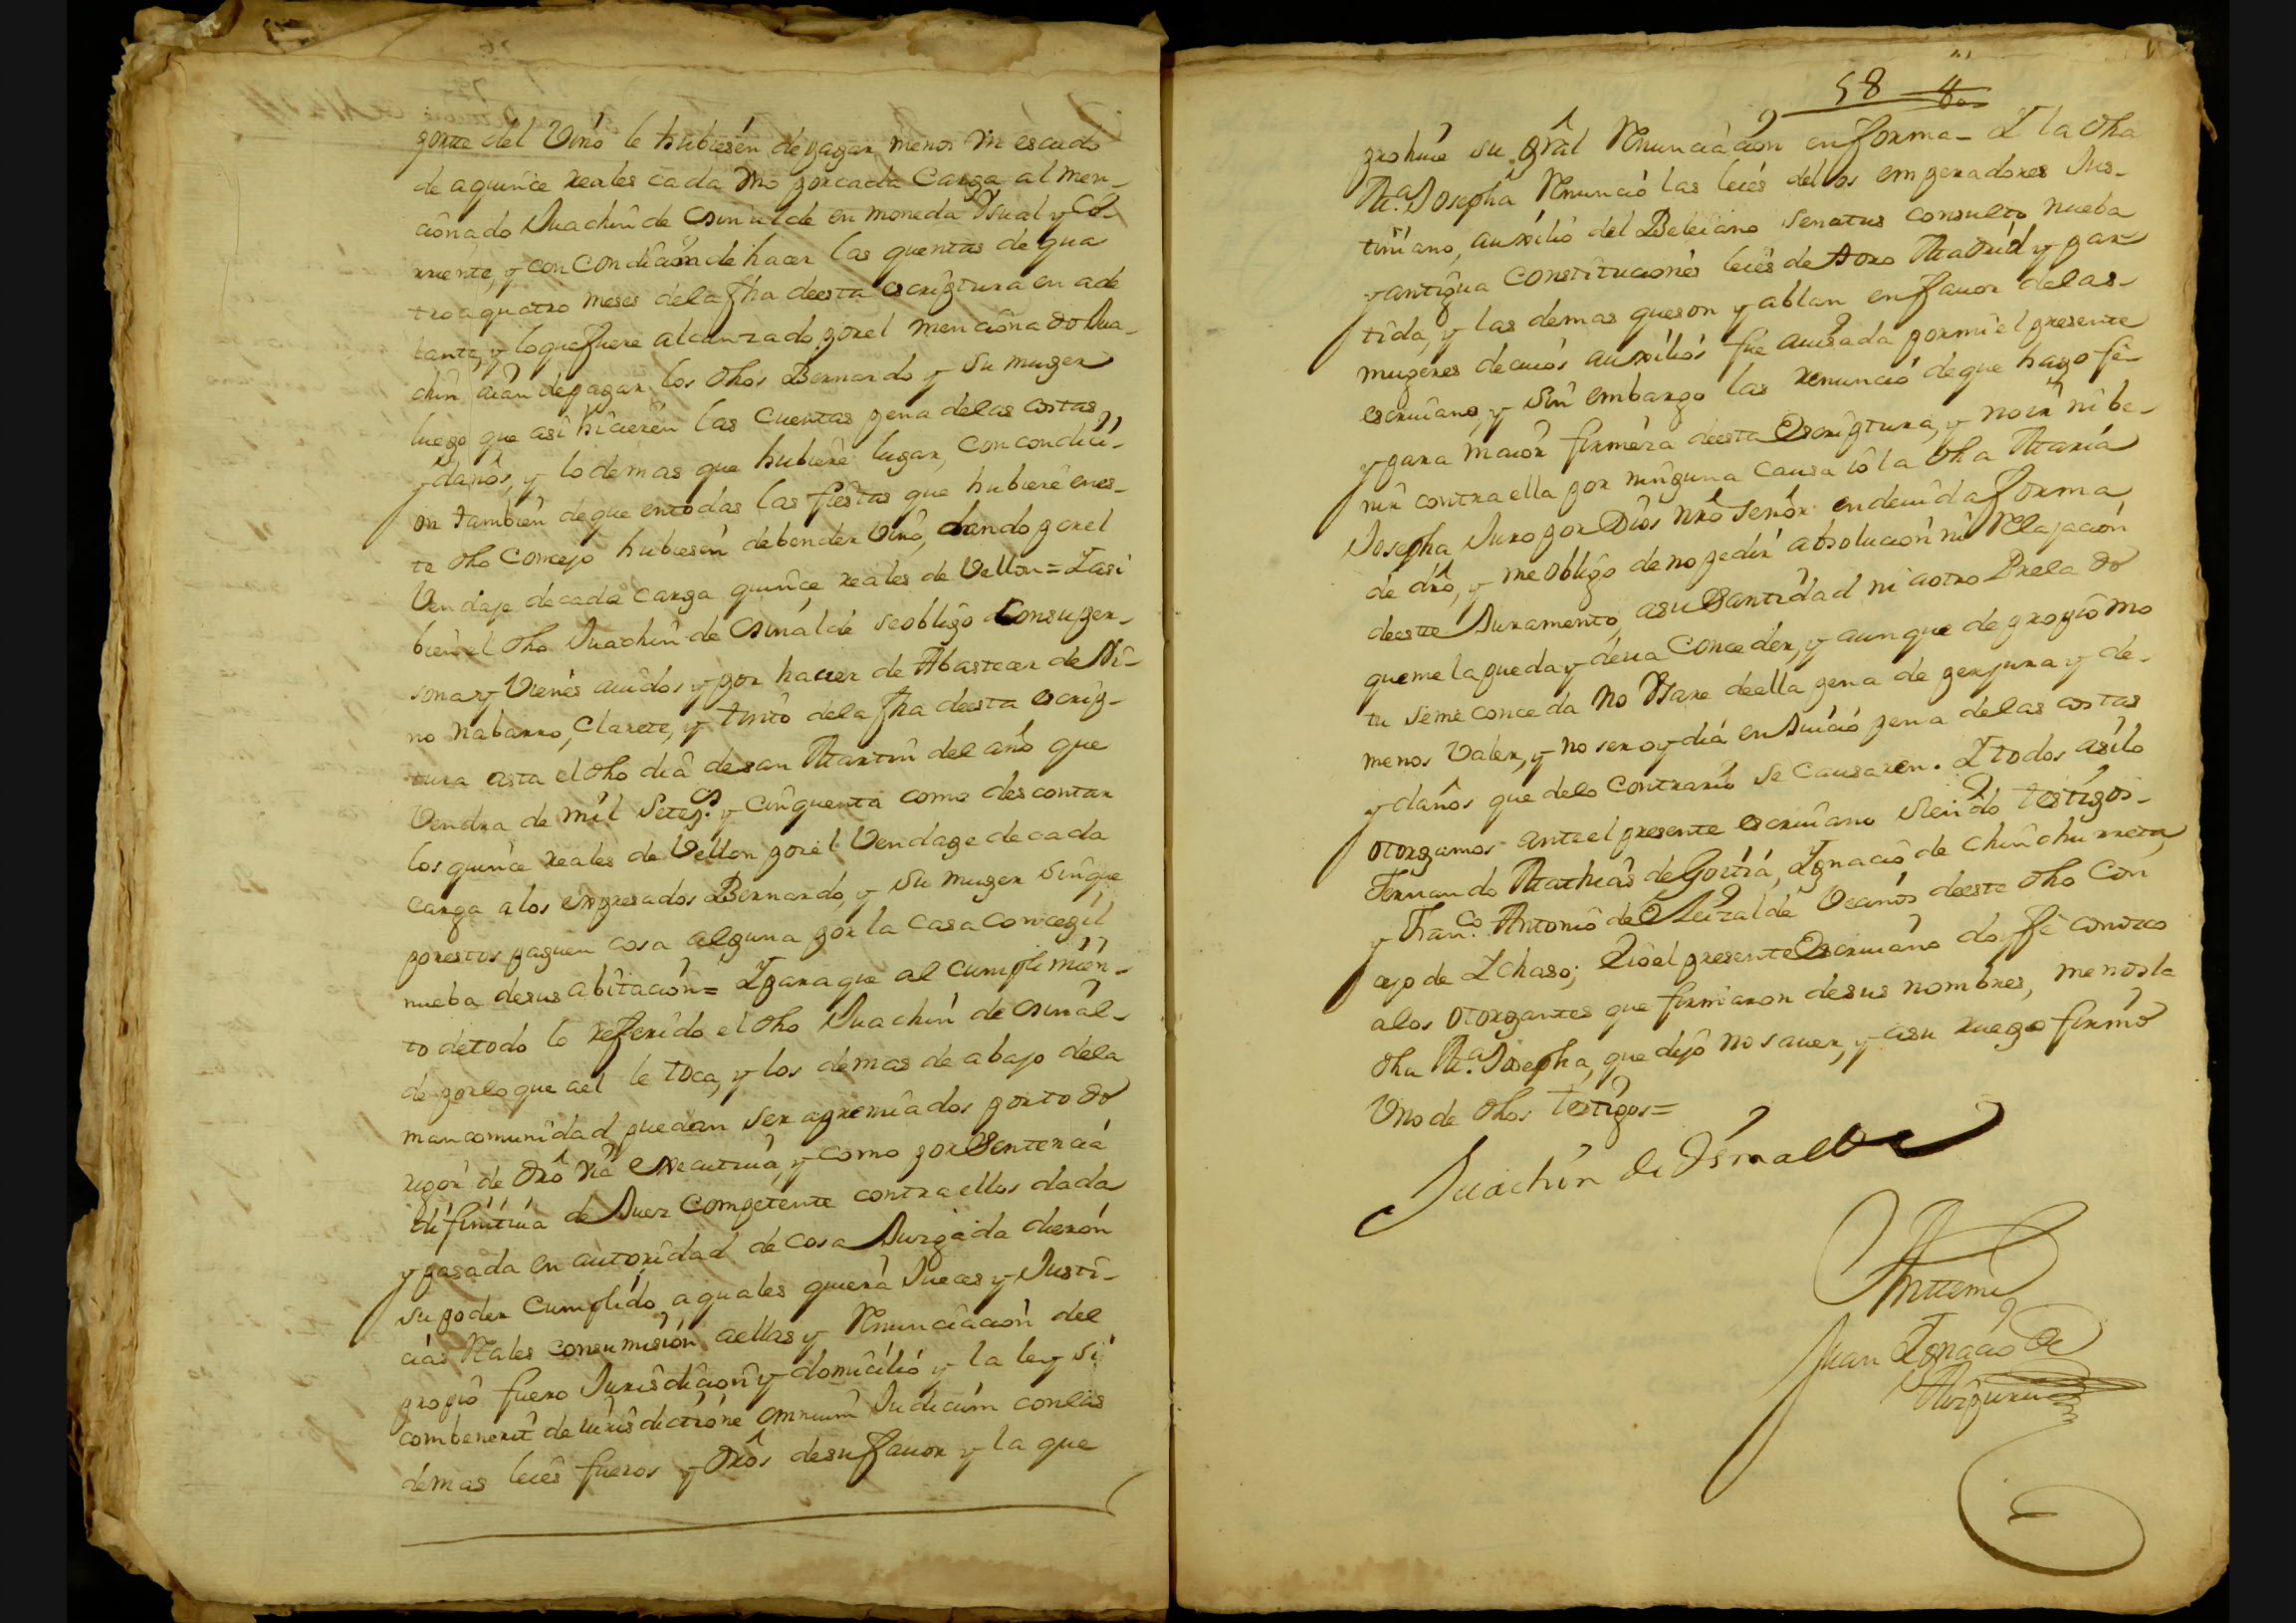 porte del Vino le hubiesen de pagar menos Vn escudo
de aquince reales cada Vno por cada Carga al men-
cionado Juachin de Osinalde en moneda Vsual y Co-
rriente, y con condicion de hacer las quentas de qua
tro aquatro meses dela fha deesta escriptura en ade
lante, y loquefuere alcanzado por el mencionado Jua-
chin aian depagar los dhos Bernardo y su muger
luego que asi hicieren las Cuentas pena delas costas
y daños, y lodemas que hubiere lugar, con condici-
on tambien deque entodas las fiestas que hubiere enes-
te dho Concejo hubiesen debender Vino, dando por el
Vendaje decada carga quince reales de Vellon= Iasi
bien el dho Juachin de Osinalde seobligo Consuper-
sona y Vienes auidos y por hauer de Abastecer de Vi-
no Nabarro, Clarete, y tinto dela fha deesta escrip-
tura asta el dho dia desan Martin del año que
Vendra de mil Setez.s y Cinquenta como descontar
los quince reales de Vellon por el Vendage decada
carga alos expresados Bernardo, y Su muger Sinque
porestos paguen cosa alguna por la Casa Concegil
nueba desus abitacion= Iparaque al cumplimien-
to detodo lo referido el dho Juachin de Osinal-
de porloque ael le toca, y los demas de abajo dela
mancomunidad puedan ser apremiados portodo
rigor de dro Via executiua, y como porSentencia
difinitiua de Juez Competente contraellos dada
y pasada en autoridad de cosa Juzgada dieron
su poder Cumplido aquales quiera Jueces y Justi-
cias Reales consumision aellas y Renunciacion del
propio fuero Jurisdicion y domicilio y la ley Si
combenerit de iurisdictione omnium Judicum conlas
demas leies fueros y dros desufauor y la que
58
prohiue su gral Renunciacion enforma- I la dha
Ma. Josepha Renuncio las leies delos emperadores Jus-
tiniano, auxilio del Beleiano Senatus consulto nueba
y antigua Constituciones leies de toro Madrid y par-
tida, y las demas queson y ablan enfauor delas-
mugeres decuios auxilios fue auisada pormi el presente
escriuano, y Sin embargo las renuncio deque hago fe-
y para maior firmeza deesta Escriptura, y noir nibe-
nir contraella por ninguna Causa io la dha Maria
Josepha Juro por Dios nro Señor endeuida forma
de dro, y me obligo denopedir absolucion ni Relajacion
deeste Juramento asuSantidad ni aotro Prelado
queme lapueda y deua Conceder, y aunque de propio mo
tu Seme conceda no Vsare deella pena de perjura y de-
menos Valer, y no ser oyda en Juicio pena delas costas
y daños que delo contrario Se Causaren. I todos asilo
otorgamos anteel presente escriuano siendo testigos-
Fernando Mathias de Goitia, Ignacio de Chinchurreta
y Fran.co Antonio de Leizalde Vecinos deeste dho Con
cejo de Ichaso; Eioel presente Escriuano doyfe conozco
alos otorgantes que firmaron desus nombres, menosla
dha Ma. Josepha, que dijo no sauer, y asu ruego firmo
Vno de dhos testigos=
Juachin de Osinalde
Anttemi
Juan Ignacio de